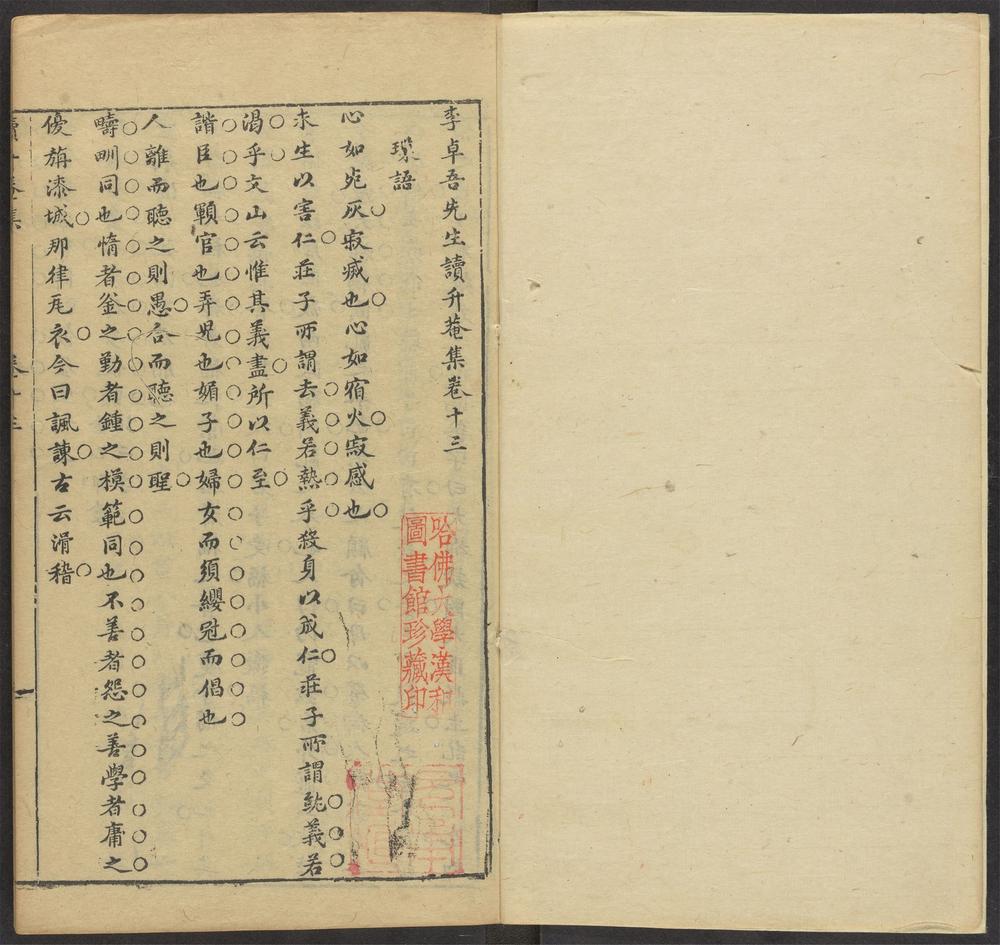 李卓吾先生讀升菴集卷十三
瑣語
心如死灰寂滅也心如宿火寂感也
求生以害仁莊子所謂去義若熱乎殺身以成仁莊子所謂就義若
渴乎文山云惟其義盡所以仁至
諧臣也顆官也弄兒也媚子也婦女而須纓冠而倡也
人離而聽之則愚合而聽之則聖
疇甽同也惰者釜之勤者鍾之模範同也不善者怨之善學者庸之
優旃漆城那律瓦衣今曰諷諫古云滑稽
哈佛大學漢和
圖書館珍藏印